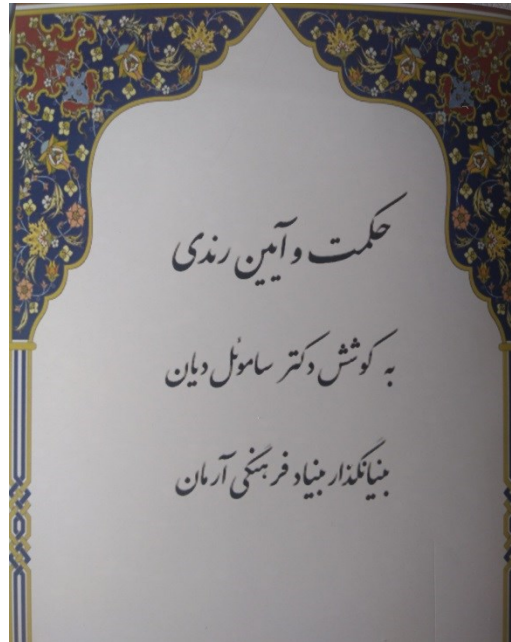 حکمت و آیین رندی
به کوشش دکتر ساموئل دیان
بنیانگذار بنیاد فرهنگی آرمان